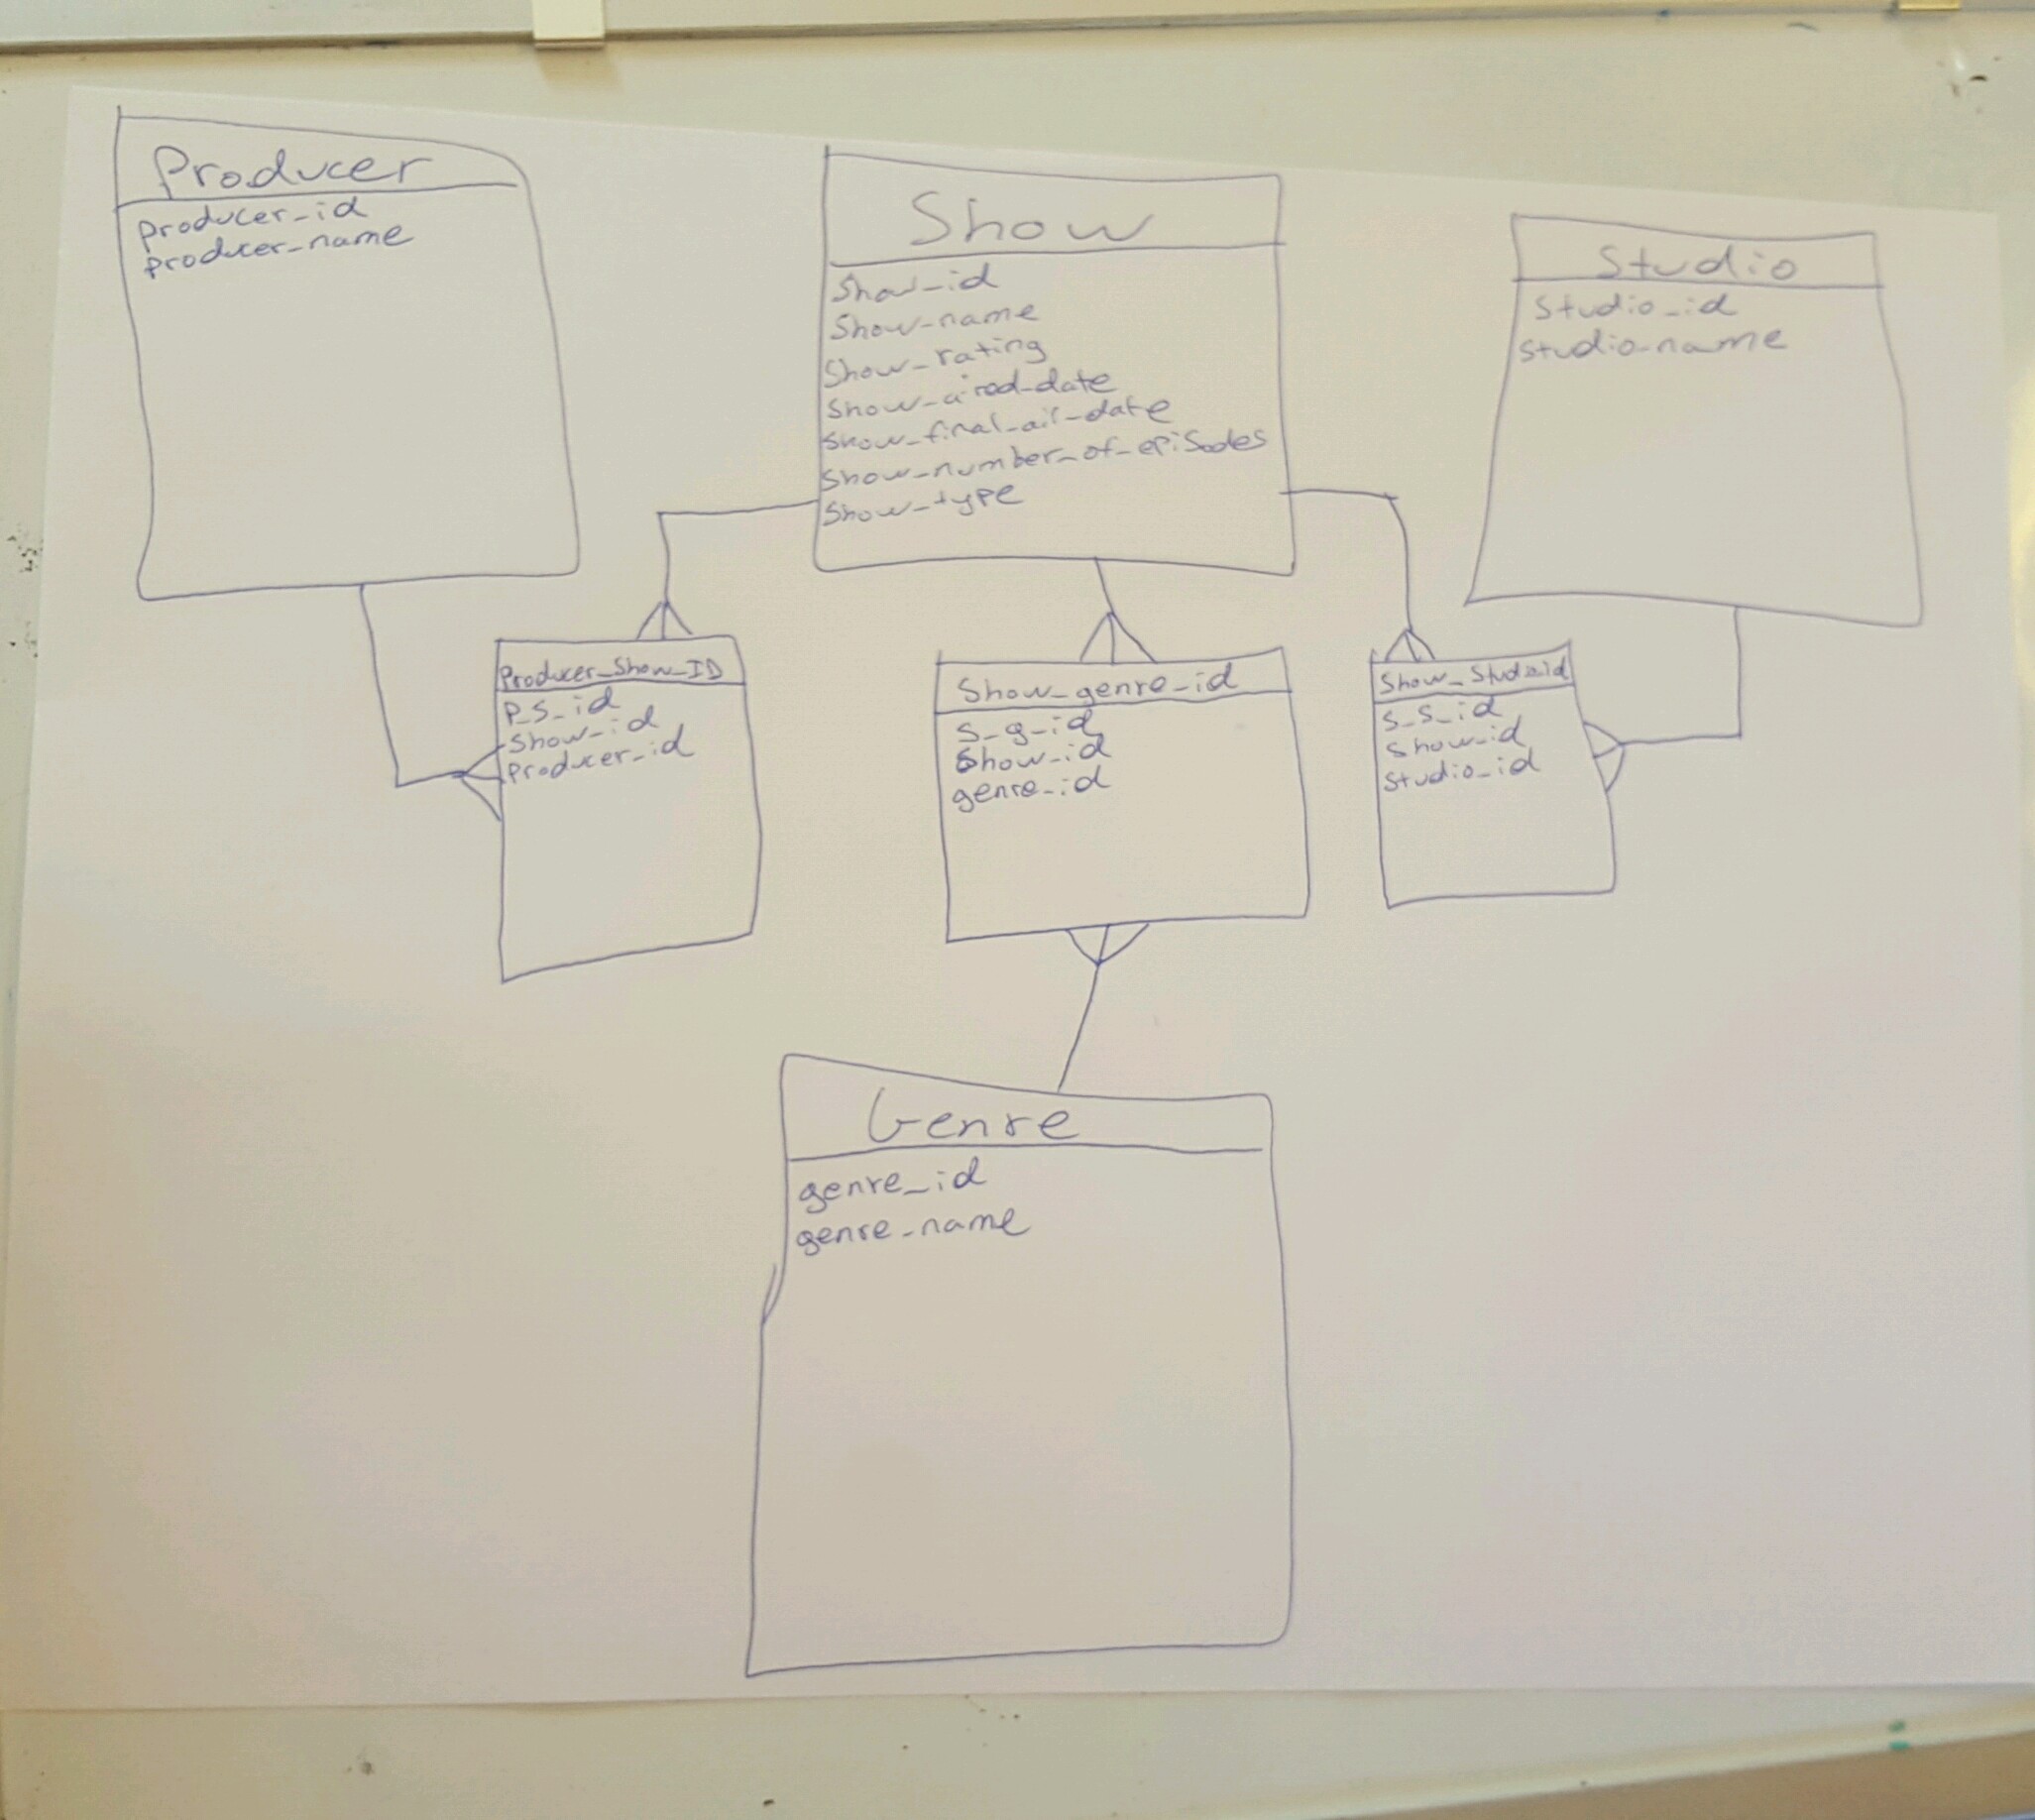 Producer
producer_id
producer_name
Show
Show_id
Show_name
Show_rating
Show_aired_date
Show_final_air_date
Show_number_of_episodes
Show_type
Studio
Studio_id
Studio_name
Producer_Show_ID
P_S_id
Show_id
Producer_id
Show_genre_id
S_g_id
Show_id
genre_id
S_S_id
Show_id
Studio_id
Genre
genre_id
genre_name